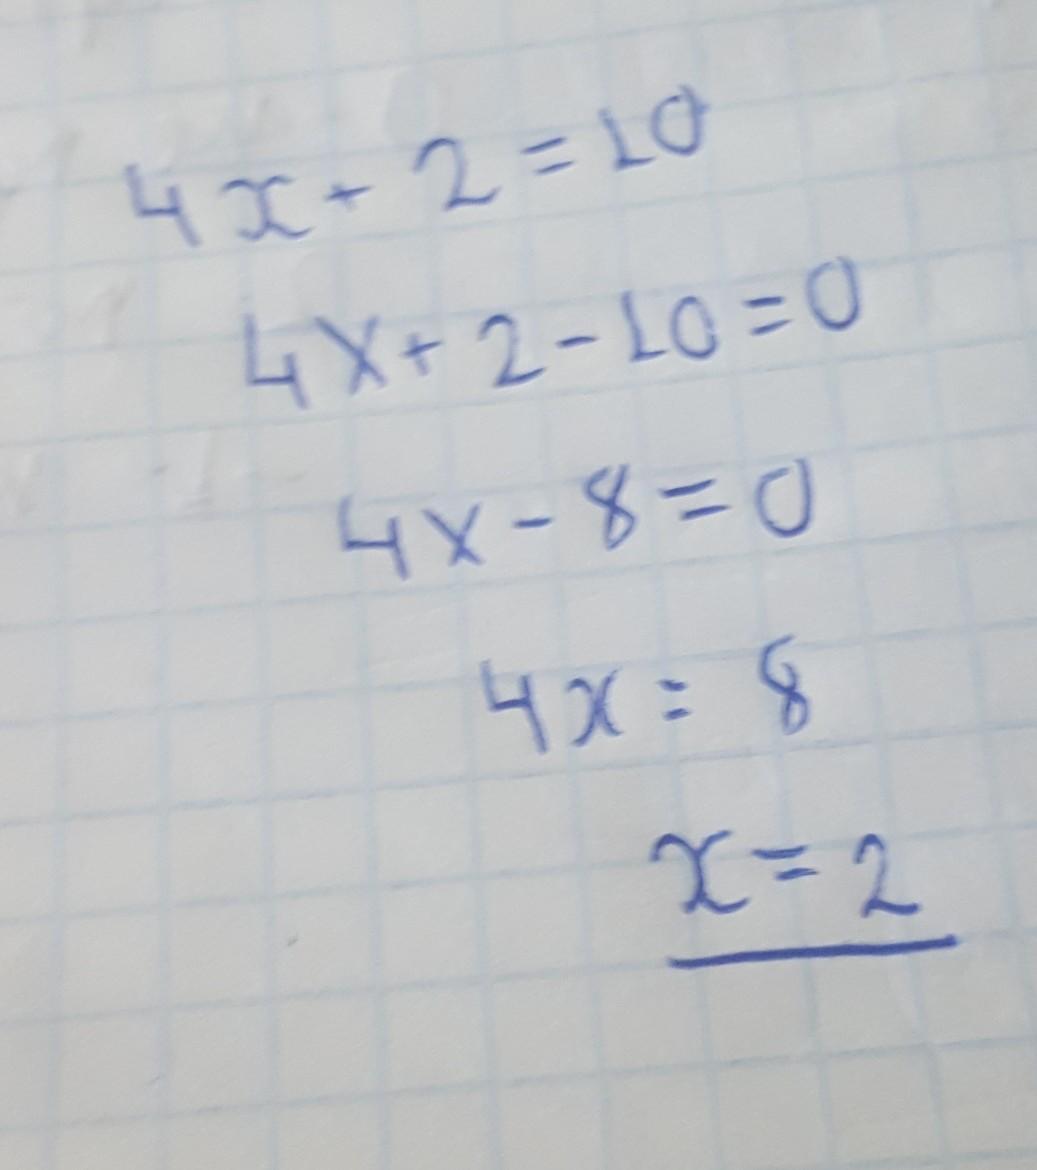 4x + 2 = 10
4x + 2 - 10 = 0
4x - 8 = 0
4x = 8
x = 2